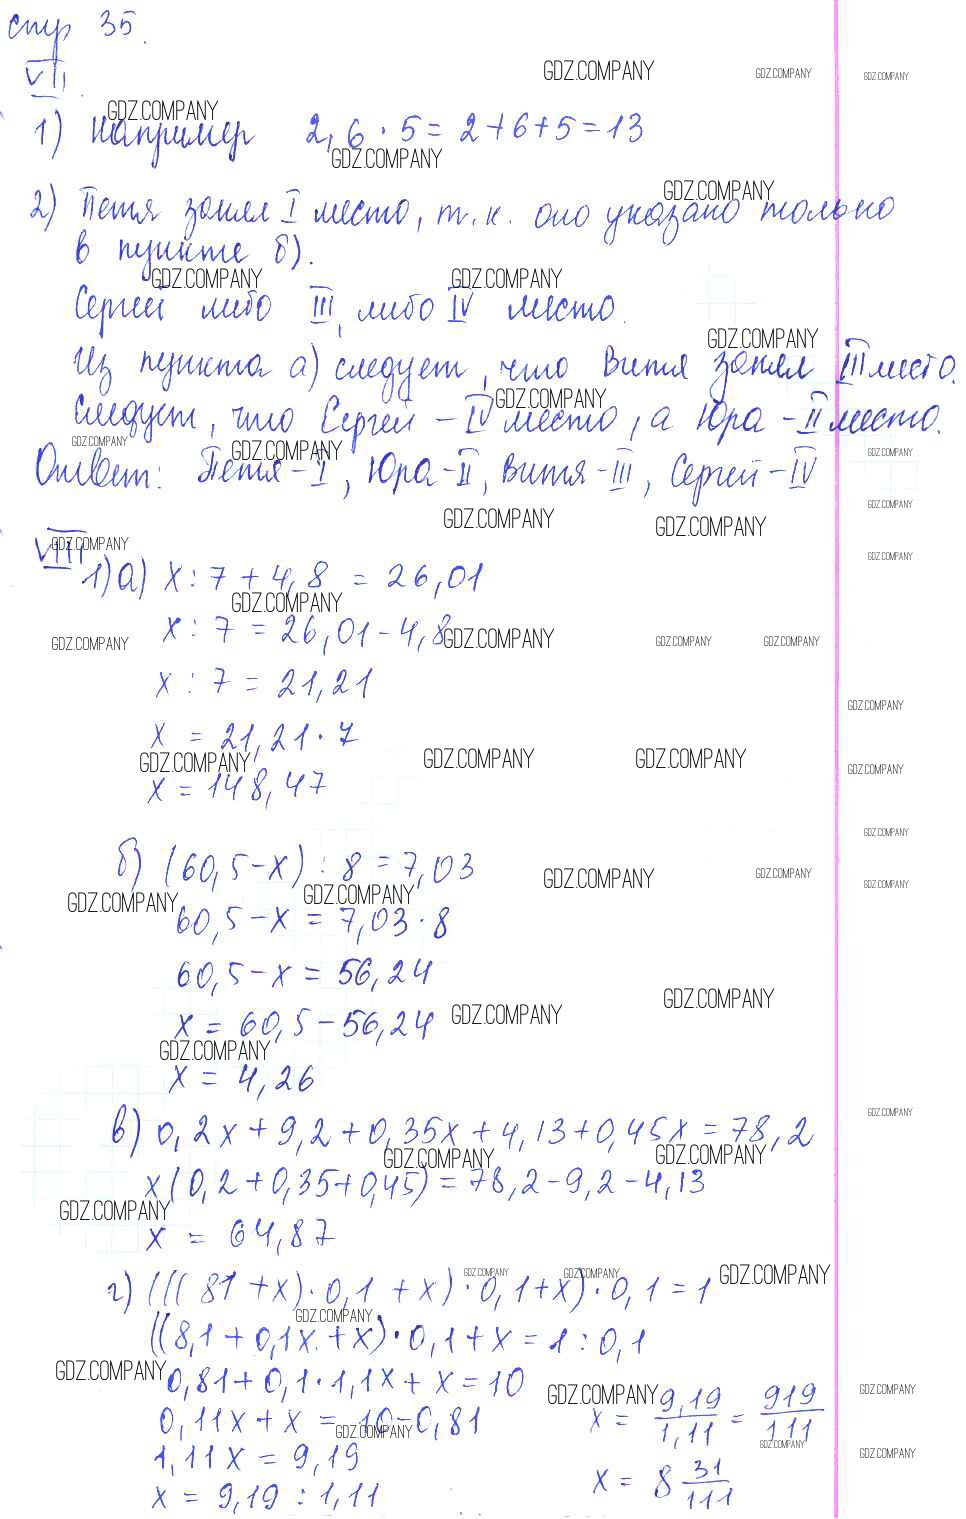 стр 35.
VII
1) Например 2,6 · 5 = 2+6+5=13
2) Петя занял I место, т.к. оно указано только
в пункте б).
Сергей либо III, либо IV место.
Из пункта а) следует, что Витя занял III место.
следует, что Сергей – IV место, а Юра – II место.
Ответ: Петя – I, Юра – II, Витя – III, Сергей – IV
VIII
1) а) x : 7 + 4,8 = 26,01
x : 7 = 26,01 - 4,8
x : 7 = 21,21
x = 21,21 · 7
x = 148,47
б) (60,5 - x) : 8 = 7,03
60,5 - x = 7,03 · 8
60,5 - x = 56,24
x = 60,5 - 56,24
x = 4,26
в) 0,2x + 9,2 + 0,35x + 4,13 + 0,45x = 78,2
x(0,2 + 0,35 + 0,45) = 78,2 - 9,2 - 4,13
x = 64,87
г) (((81 + x) · 0,1 + x) · 0,1 + x) · 0,1 = 1
((8,1 + 0,1x + x) · 0,1 + x = 1 : 0,1
0,81 + 0,1 · 1,1x + x = 10
0,11x + x = 10 - 0,81
1,11x = 9,19
x = 9,19 : 1,11
x = 9,19/1,11 = 919/111
x = 8 31/111
GDZ.COMPANY